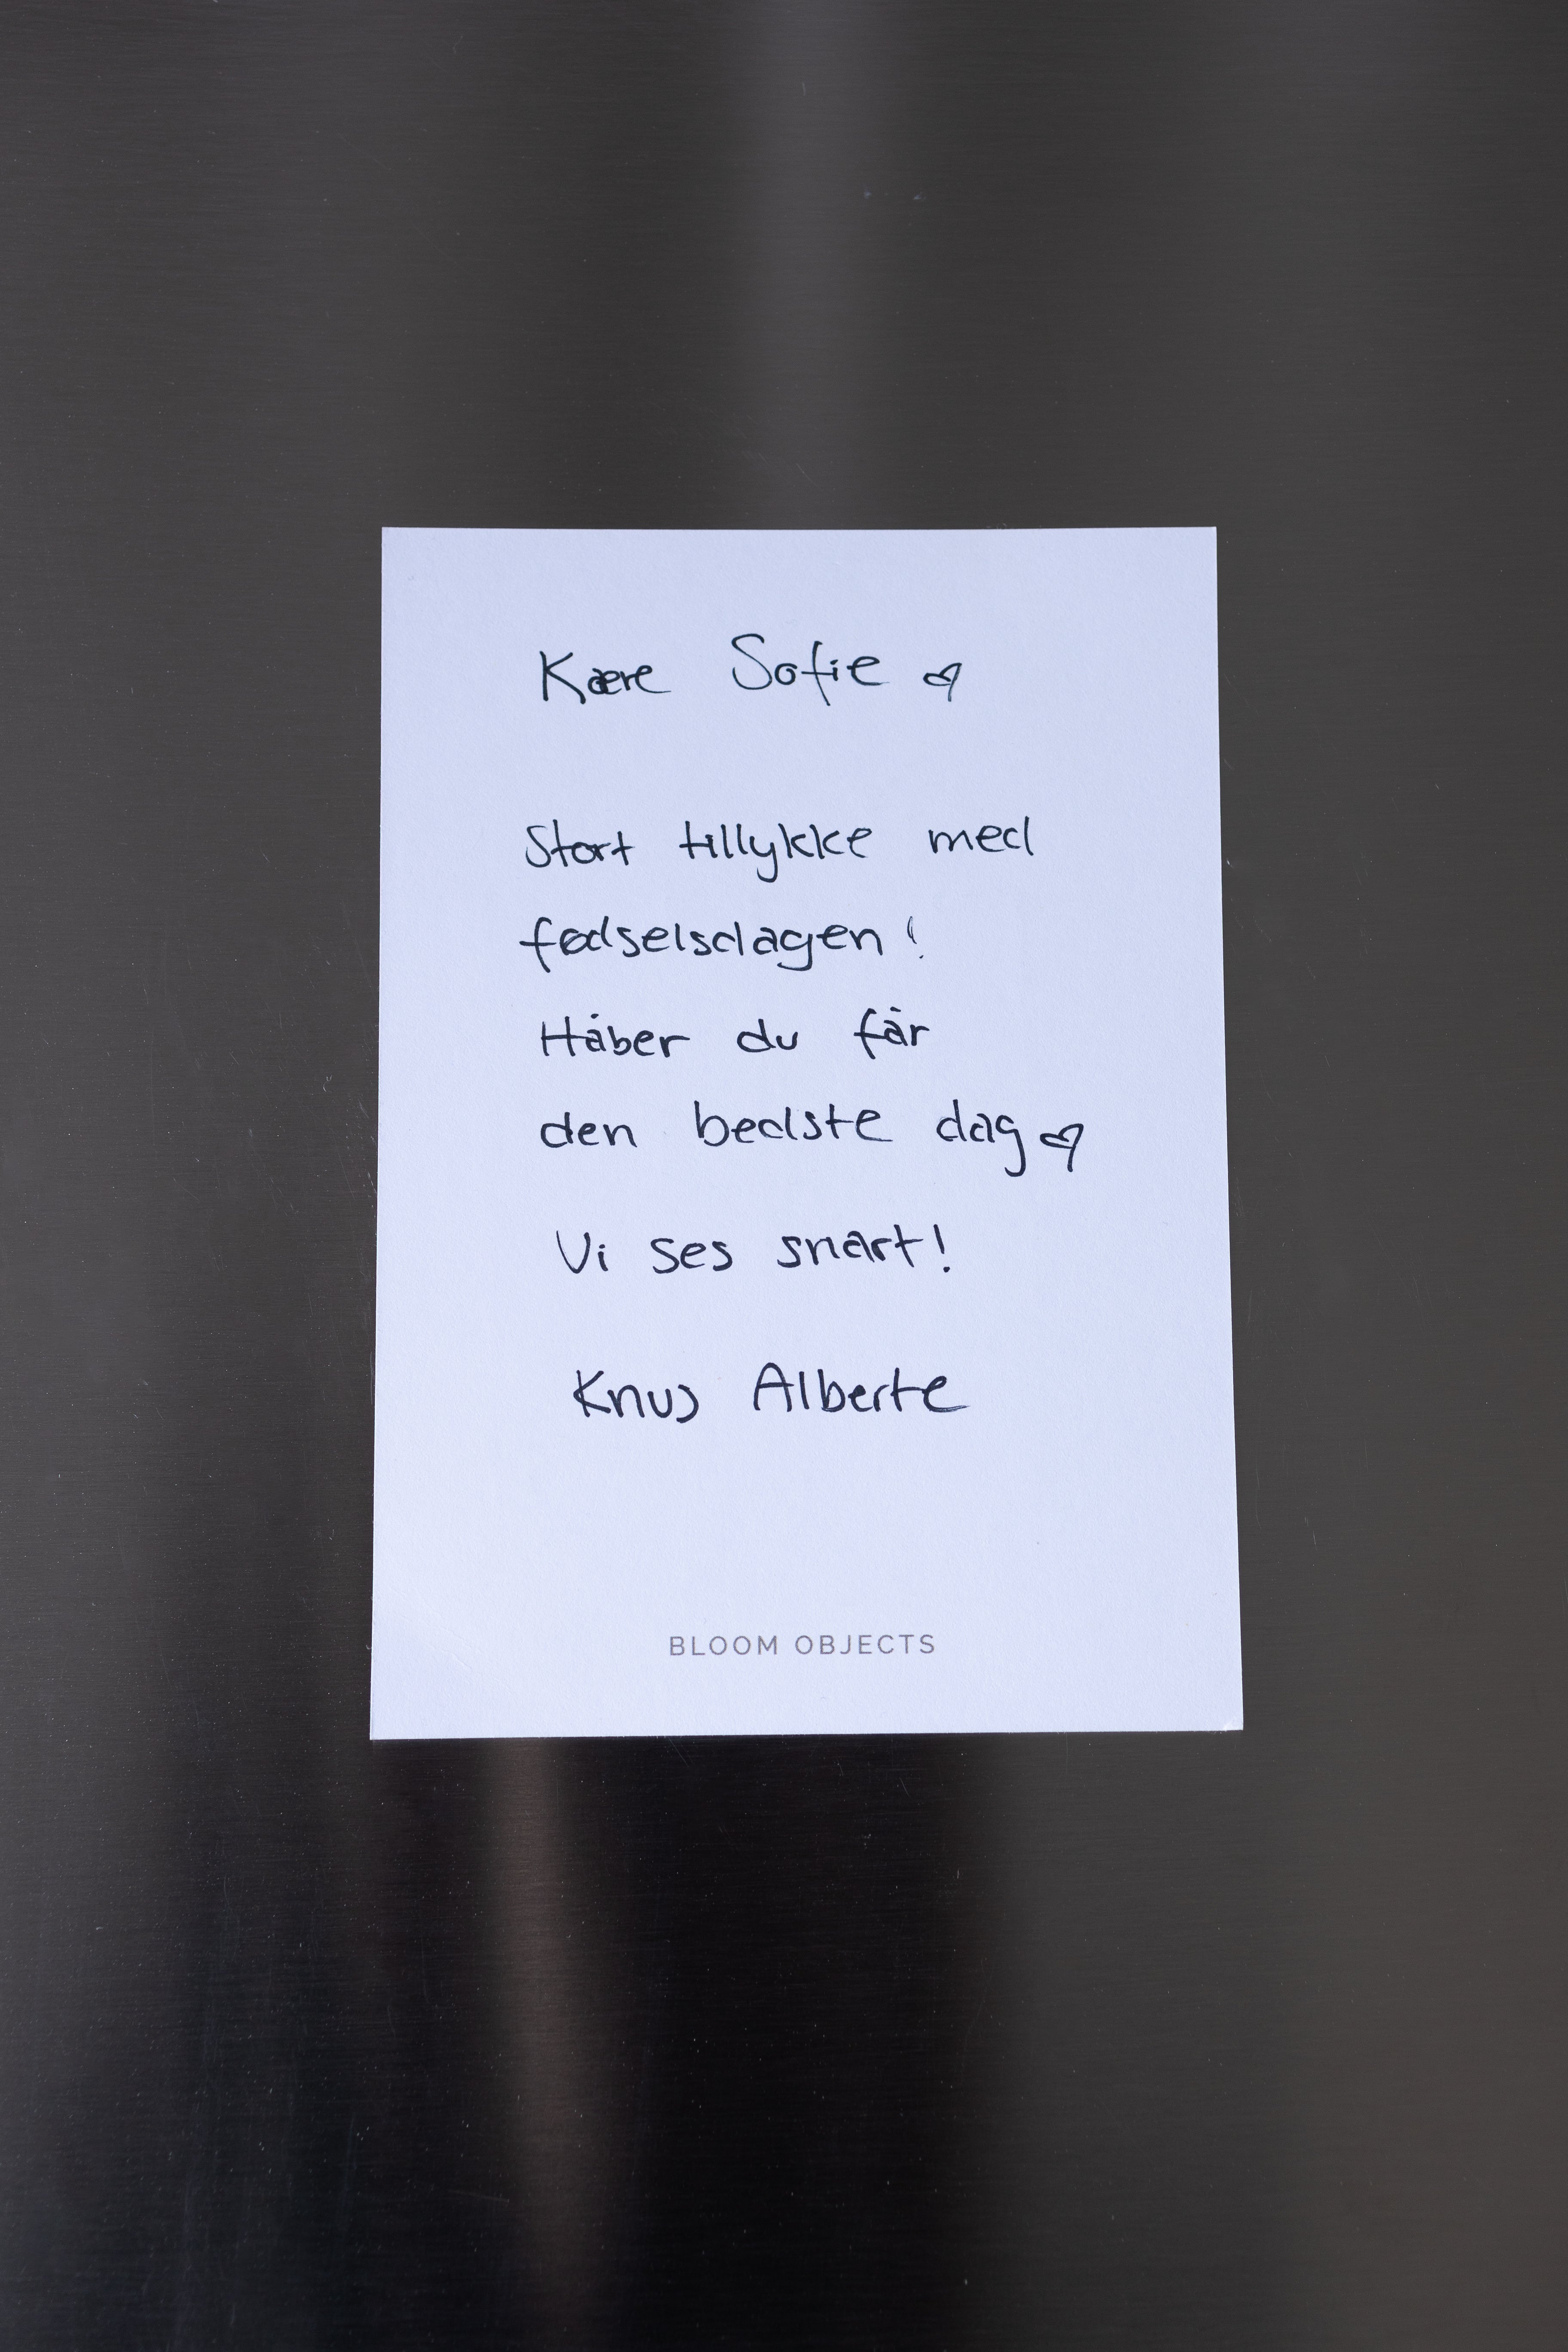 Kære Sofie ♡
Stort tillykke med
fødselsdagen!
Håber du får
den bedste dag ♡
Vi ses snart!
Knus Alberte
BLOOM OBJECTS